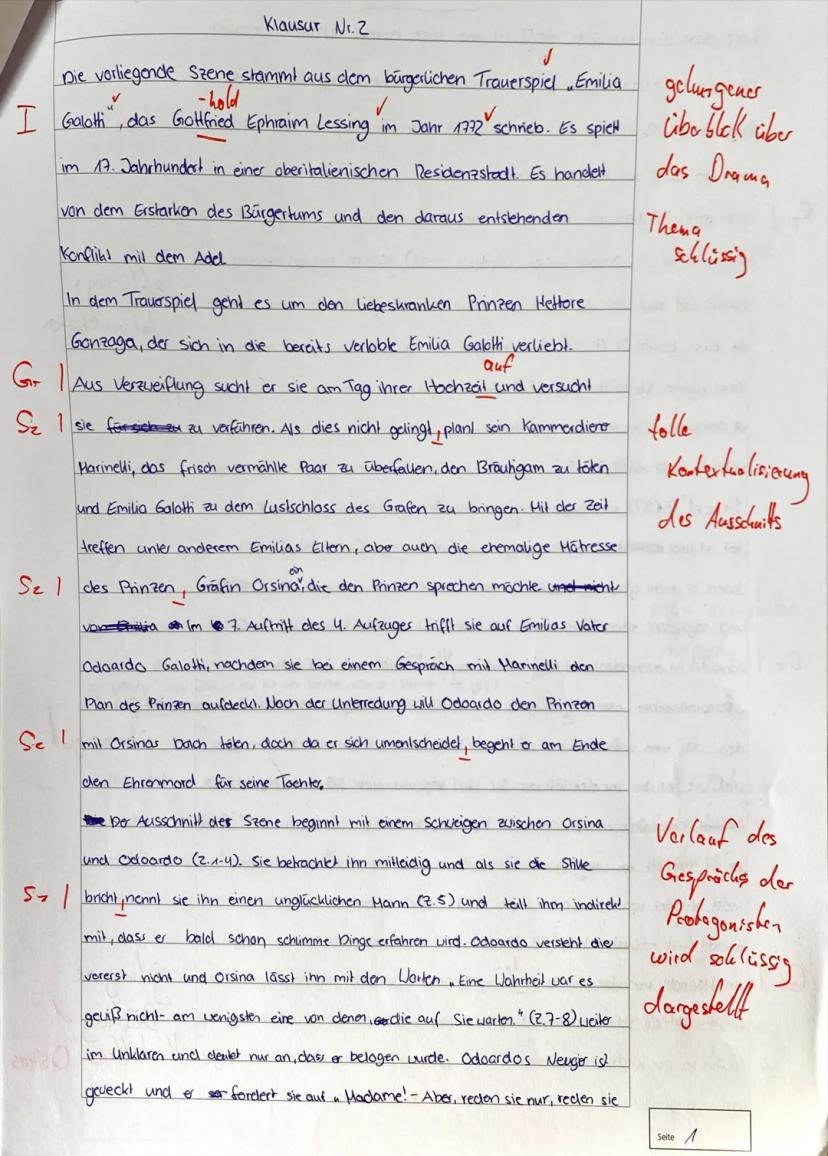 Klausur Nr. 2
Die vorliegende Szene stammt aus dem bürgerlichen Trauerspiel „Emilia
gelungener
-hold
I
Galotti", das Gottfried Ephraim Lessing im Jahr 1772 schrieb. Es spielt
Überblick über
im 17. Jahrhundert in einer oberitalienischen Residenzstadt. Es handelt
das Drama
von dem Erstarken des Bürgertums und den daraus entstehenden
Thema
schlüssig
Konflikt mit dem Adel.
In dem Trauerspiel geht es um den liebeskranken Prinzen Hettore
Gonzaga, der sich in die bereits verlobte Emilia Galotti verliebt.
auf
Gr |
Aus Verzweiflung sucht er sie am Tag ihrer Hochzeit und versucht
Sz |
sie zu verführen. Als dies nicht gelingt, plant sein Kammerdiener
tolle
Marinelli, das frisch vermählte Paar zu überfallen, den Bräutigam zu töten
Kontextualisierung
und Emilia Galotti zu dem Lustschloss des Grafen zu bringen. Mit der Zeit
des Ausschnitts
treffen unter anderem Emilias Eltern, aber auch die ehemalige Mätresse
an
Sz |
des Prinzen, Gräfin Orsina, die den Prinzen sprechen möchte. und nicht
Im 7. Auftritt des 4. Aufzuges trifft sie auf Emilias Vater
Odoardo Galotti, nachdem sie bei einem Gespräch mit Marinelli den
Plan des Prinzen aufdeckt. Nach der Unterredung will Odoardo den Prinzen
Sz |
mit Orsinas Dolch töten, doch da er sich umentscheidet, begeht er am Ende
den Ehrenmord für seine Tochter.
Der Ausschnitt der Szene beginnt mit einem Schweigen zwischen Orsina
Verlauf des
und Odoardo (Z.1-4). Sie betrachtet ihn mitleidig und als sie die Stille
Gesprächs der
Sz |
bricht, nennt sie ihn einen unglücklichen Mann (Z.5) und teilt ihm indirekt
Protagonisten
mit, dass er bald schon schlimme Dinge erfahren wird. Odoardo versteht die
wird schlüssig
vorerst nicht und Orsina lässt ihn mit den Worten „Eine Wahrheit war es
dargestellt
gewiß nicht- am wenigsten eine von denen, die auf Sie warten." (Z.7-8) weiter
im Unklaren und deutet nur an, dass er belogen wurde. Odoardos Neugier ist
geweckt und er fordert sie auf „Madame!- Aber, reden sie nur, reden sie
Seite 1